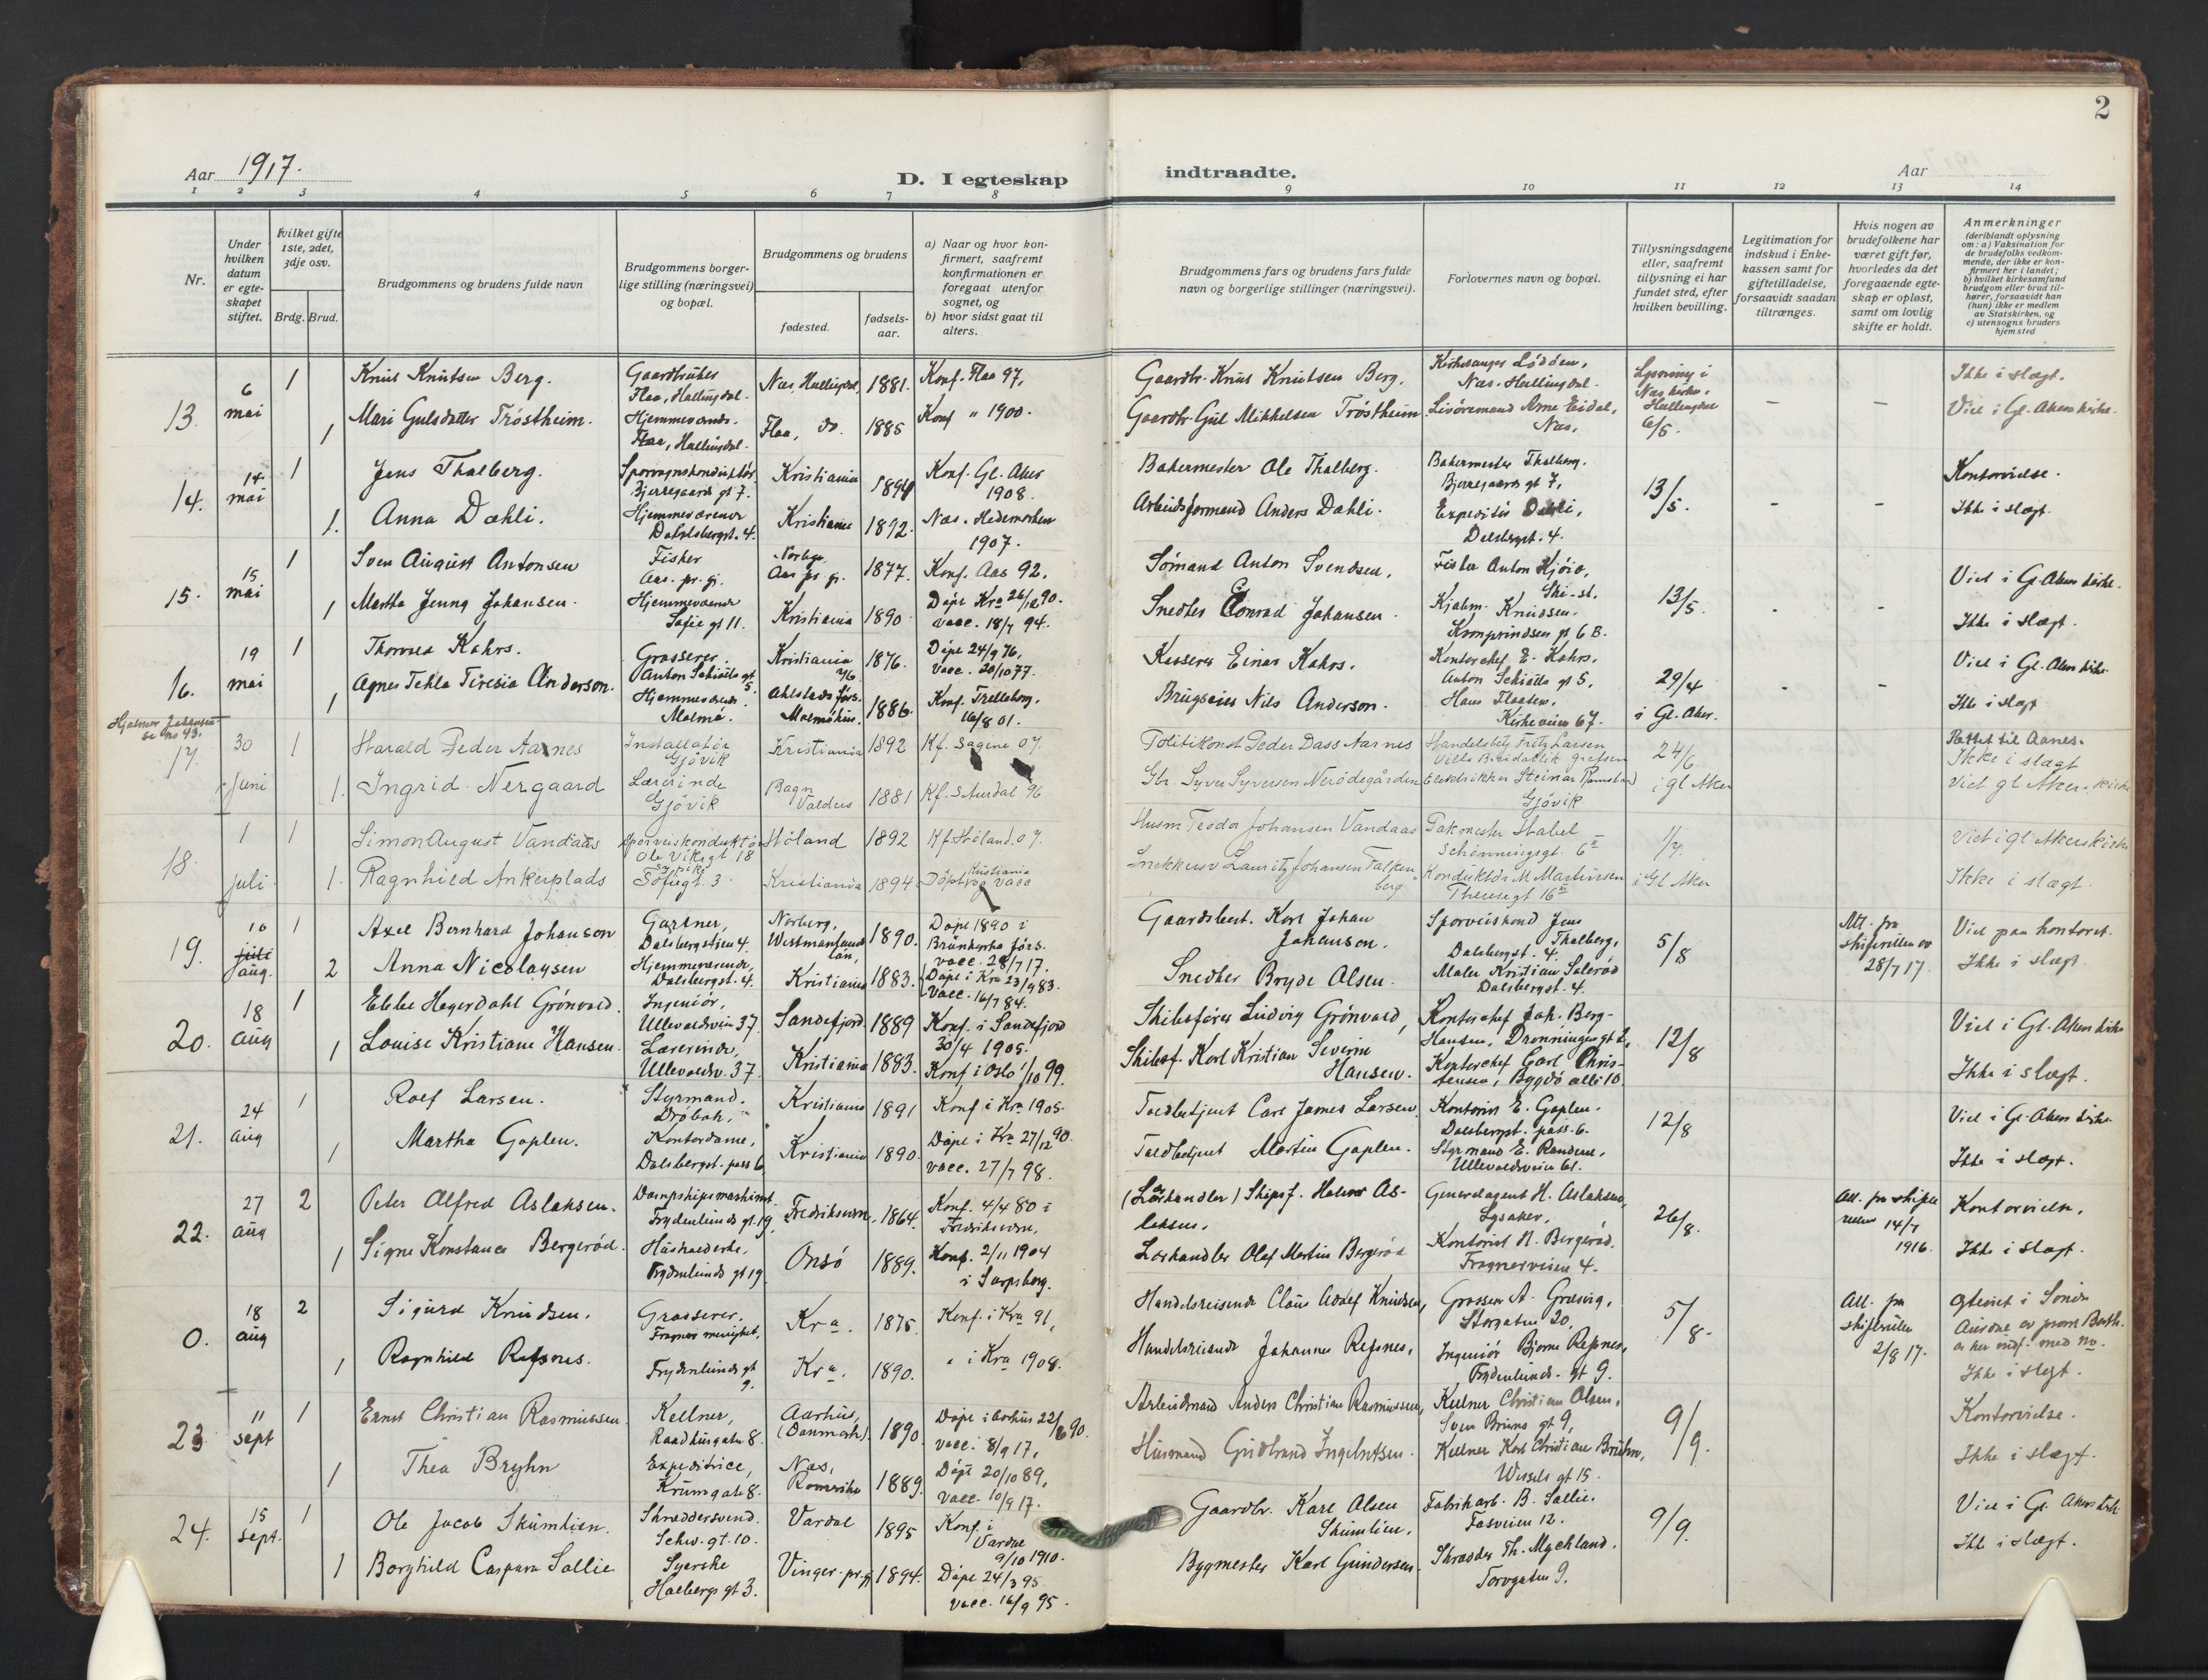 2
Aar 1917.
D. I egteskap
indtraadte.
Aar
1 2 3 4 5 6 7 8 9 10 11 12 13 14
Nr.
Under hvilken datum er egteskapet stiftet.
hvilket gifte 1ste, 2det, 3dje osv.
Brdg. Brud.
Brudgommens og brudens fulde navn
Brudgommens borgerlige stilling (næringsvei) og bopæl.
Brudgommens og brudens
fødested.
fødselsaar.
a) Naar og hvor konfirmert, saafremt konfirmationen er foregaat utenfor sognet, og
b) hvor sidst gaat til alters.
Brudgommens fars og brudens fars fulde navn og borgerlige stillinger (næringsvei).
Forlovernes navn og bopæl.
Tillysningsdagene eller, saafremt tillysning ei har fundet sted, efter hvilken bevilling.
Legitimation for indskud i Enkekassen samt for giftetilladelse, forsaavidt saadan tiltrænges.
Hvis nogen av brudefolkene har været gift før, hvorledes da det foregaaende egteskap er opløst, samt om lovlig skifte er holdt.
Anmerkninger
(deriblandt oplysning om: a) Vaksination for de brudefolks vedkommende, der ikke er konfirmert her i landet; b) hvilket kirkesamfund brudgom eller brud tilhører, forsaavidt han (hun) ikke er medlem av Statskirken, og c) utensogns bruders hjemsted
13. 6 mai 1 Knut Knutsen Berg. Gaardbruker Flaa, Hallingdal. Næs, Hallingdal, 1881. Konf. Flaa 97. Gaardbr. Knut Knutsen Berg. Kirkesanger Lödöen, Næs. Hallingdal. Lysning i Næs kirke, Hallingdal 6/5. Ikke i slægt.
1 Mari Gulsdatter Tröstheim. Hjemmeværende. Flaa, Hallingdal. Flaa, do. 1885 Konf " 1900. Gaardbr. Gul Mikkelsen Tröstheim. Arne Eidal, Næs. Viet i Gl. Akers kirke.
14. 14 mai 1 Jens Thalberg. Sporvognskonduktør Bjerregaards gt 7. Kristiania 1894 Konf. Gl. Aker 1908. Bakermester Ole Thalberg. Bakermester Thalberg. Bjerregaards gt 7. 13/5. Kontorvielse.
1. Anna Dæhli. Hjemmeværende Dalsbergst. 4. Kristiania 1892. Næs. Hedemarken 1907. Arbeidsformand Anders Dæhli. Expeditør Dæhli, Dalsbergst. 4. Ikke i slægt.
15. 15 mai 1 Sven August Antonsen Fisker Aas. pr. gj. Aas pr gj. 1877. Konf. Aas 92. Sömand Anton Svendsen. Fisker Anton Kjöiö, Ski-st. 13/5. Viet i Gl. Akers kirke.
1 Martha Jenny Johansen. Hjemmeværende Sofie gt 11. Kristiania 1890. Döpt Kra 26/12 90. vacc. 18/7 94. Snedker Conrad Johansen. Knudsen. Kronprindsens gt 6 B. Ikke i slægt.
16. 19 mai 1 Kahrs. Grosserer. Anton Schiøtts gt 5. Kristiania 1876. Döpt 24/9 76, vacc. 20/10 77. Kasserer Einar Kahrs. Kontorchef E. Kahrs. Anton Schiøtts gt 5. 29/4 i Gl. Aker. Viet i Gl. Akers kirke.
1 Agnes Tekla Teresia Anderson. Hjemmeværende Malmö. Ahlstads förs. Malmöhus. 1886. Konf. Trelleborg. 16/8 01. Nils Anderson. Hans Flaaten, Kirkeveien 67. Ikke i slægt
Hjalmar Johansen se no 43.
17. 30 juni 1 Harald Peder Aarnes Installatør Gjövik Kristiania 1892 Kf. Sagene 07. Politikonst Peder Dass Aarnes Fritz Larsen Grefsen 24/6 i gl Aker Rettet til Aanes. Ikke i slægt
1. Ingrid Nergaard Lærerinde Gjövik Bagn Valders 1881 Kf. S Aurdal 96 Gbr. Syver Syversen Nerödegården Elektrikker Steinar Ramstad Gjövik Viet gl Akers kirke
18. 1 juli 1 Simon August Vandaas Sporveiskonduktør Ole Viksgt 18 Höland 1892 Kf Höland. 07. Husm Teodor Johansen Vandaas Pakmester Stabel Schönningsgt. 6 II 1/7. i Gl Aker Viet i gl Akers kirke
1. Ragnhild Ankerplads Sofiegt. 3. Kristiania 1894 Döpt og vacc Kristiania Snekkersv Lauritz Johansen Falkenberg Konduktør M Martinsen Theresegt 16 II Ikke i slægt.
19. 16 juli aug. 1 Axel Bernhard Johanson Gartner, Dalsbergstien 4. Norberg, Westmanlands län, 1890. Döpt 1890 i Brännkyrka förs. vacc. 28/7 17. Gaardsbest. Karl Johan Johanson. Sporveiskond Jens Thalberg, Dalsbergst. 4. 5/8 Att. fra skifteretten av 28/7 17. Viet paa kontoret.
2 Anna Nicolaysen Hjemmeværende, Dalsbergst. 4. Kristiania 1883. Döpt i Kra 23/9 83. Vacc. 16/7 84. Snedker Bryde Olsen. Maler Kristian Solerød Dalsbergst. 4. Ikke i slægt
20. 18 aug 1 Ebbe Hegerdahl Grönvold. Ingeniör, Ullevaldsvein 37. Sandefjord 1889 Konf. i Sandefjord 30/4 1905. Skibsförer Ludvig Grönvold, Kontorchef Joh. Berg-Hansen, Dronningensgt 2. 12/8 Viet i Gl. Akers kirke
1 Louise Kristiane Hansen. Lærerinde, Ullevaldsv. 37. Kristiania 1883. Konf i Oslo 1/10 99. Skibsf. Karl Kristian Severin Hansen. Kontorchef Carl Christensen, Bygdö alle 10. Ikke i slægt.
21. 24 aug 1 Rolf Larsen. Styrmand. Dröbak. Kristiania 1891 Konf. i Kra 1905. Toldbetjent Carl James Larsen. Kontorist E. Goplen. Dalsbergst. pass. 6. 12/8 Viet i Gl. Akers kirke
1 Martha Goplen. Kontordame, Dalsbergst. pass 6. Kristiania 1890. Döpt i Kra 27/12 90. vacc. 27/7 98. Toldbetjent Martin Goplen. Styrmand E. Randene, Ullevoldsveien 61. Ikke i slægt.
22. 27 aug 2 Peter Alfred Aslaksen. Dampskipsmaskinist. Frydenlunds gt. 19. Fredriksværn. 1864. Konf. 4/4 80 i Fredriksværn. (Læskandler) Skipsf. Halvor Aslaksen. Generalagent H. Aslaksen, Lysaker. 26/8. Att. fra skifteretten 14/7 1916. Kontorvielse.
1 Signe Konstance Bergerød. Husholderske. Frydenlunds gt 19. Onsö 1889. Konf. 2/11 1904 i Sarpsborg. Olaf Martin Bergerød Kontorist H. Bergerød. Frognerveien 4. Ikke i slægt.
0. 18 aug 2 Sigurd Knudsen. Grosserer. Frogner menighet. Kra. 1875. Konf. i Kra 91. Handelsreisende Claus Adolf Knudsen, Grosserer A. Storgaten 20. 5/8. Att. fra skifteretten 2/8 17.
1 Ragnhild Refsnes. Frydenlunds gt 9. Kra. 1890. " i Kra 1908. Handelsreisende Johannes Refsnes, Ingeniör Bjarne Refsnes, Frydenlunds-gt 9. Ikke i slægt.
23. 11 sept 1 Ernst Christian Rasmussen Kellner, Raadhusgaten 8. Aarhus, (Danmark). 1890. Döpt i Aarhus 22/6 90. vacc. 8/9 17. Arbeidsmand Anders Christian Rasmussen, Kellner Christian Olsen, Sven Bruns gt 9. 9/9. Kontorvielse.
1 Thea Bryhn Expeditrice, Krumgaten 8. Næs, Romerike 1889. Döpt 20/10 89. Vacc. 10/9 17. Husmand Gudbrand Ingebretsen. Kellner Karl Christian Bruhn, Wessels gt 15. Ikke i slægt.
24. 15 sept. 1 Ole Jacob Skumlien. Skræddersvend. Schw. gt. 10. Vardal 1895 Konf. i Vardal 9/10 1910. Gaardbr. Karl Olsen Skumlien. Fabrikarb. B. Sollie. Fasveien 12. 9/9. Viet i Gl. Akers kirke
1 Borghild Caspara Sollie Syerske Holbergs gt 3. Vinger pr.gj. 1894. Döpt 24/3 95 vacc. 16/9 95. Bygmester Karl Gundersen. Skrædder Th. Myckland. Torvgaten 9. Ikke i slægt.